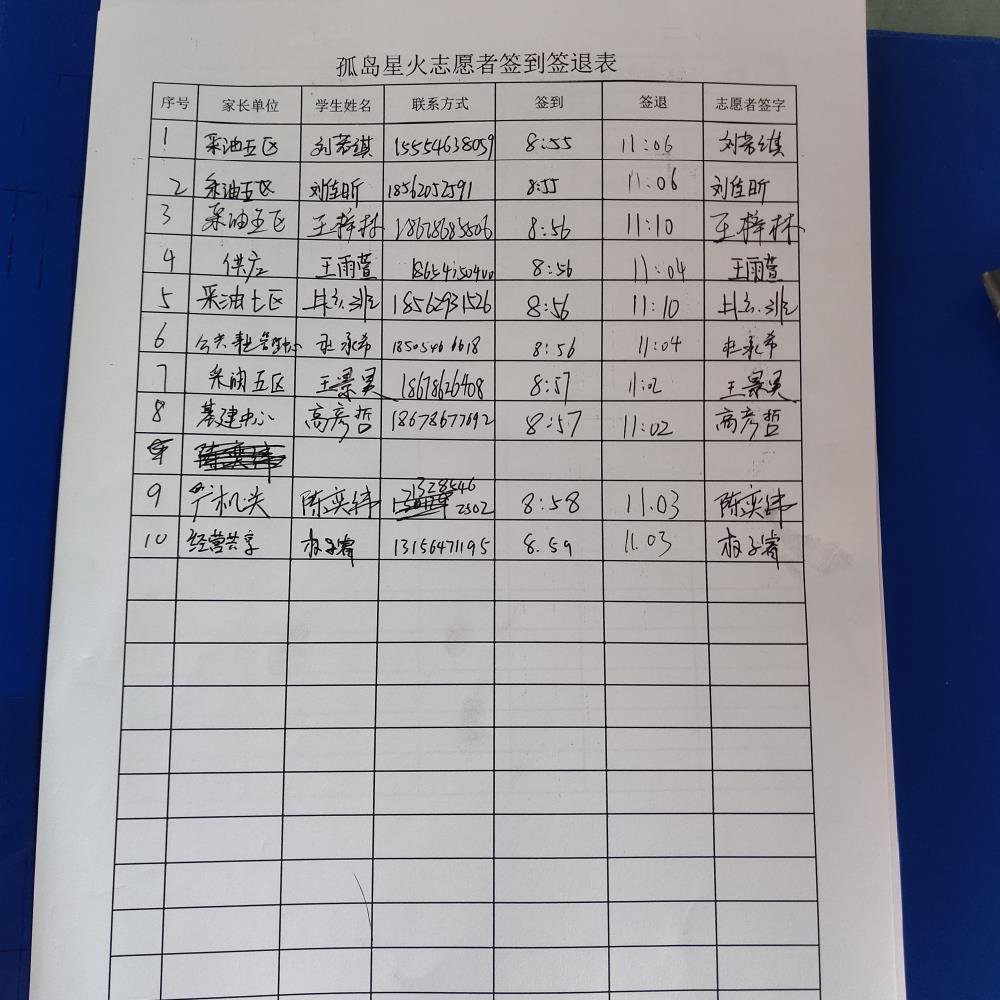 孤岛星火志愿者签到签退表
序号 家长单位 学生姓名 联系方式 签到 签退 志愿者签字
1 采油五区 刘若缜 15554638059 8:55 11:06 刘若缜
2 采油五区 刘佳昕 18562052591 8:55 11:06 刘佳昕
3 采油五区 王梓林 8:56 11:10 王梓林
4 供应 王雨萱 8:56 11:04 王雨萱
5 采油七区 18562931526 8:56 11:10
6 公共事业管理中心 杜承希 8:56 11:04 杜承希
7 采油五区 王景昊 18678626408 8:57 11:02 王景昊
8 基建中心 高彦哲 18678677692 8:57 11:02 高彦哲
9 厂机关 陈奕纬 13285462502 8:58 11.03 陈奕纬
10 经营共享 13156471195 8.59 11.03